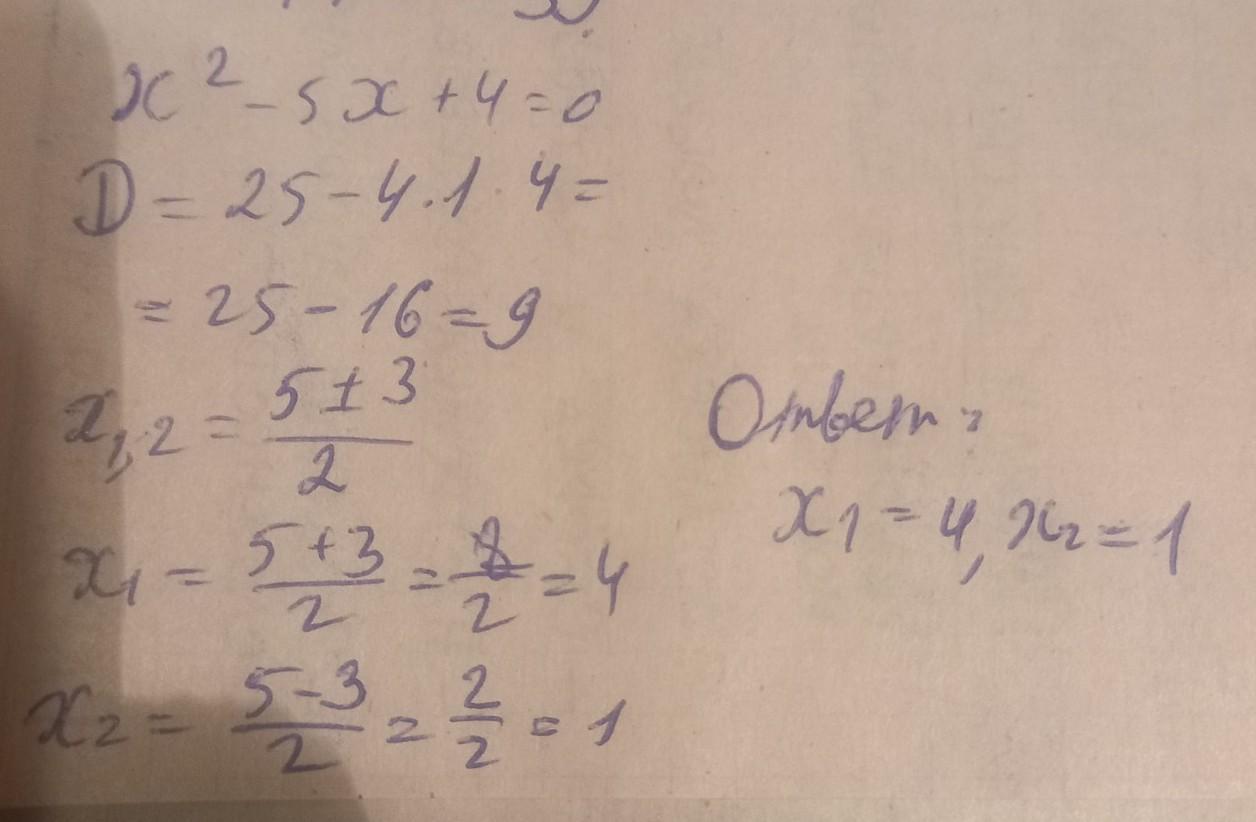 x² - 5x + 4 = 0
D = 25 - 4 · 1 · 4 =
= 25 - 16 = 9
x₁,₂ = (5 ± 3)/2
x₁ = (5 + 3)/2 = 8/2 = 4
x₂ = (5 - 3)/2 = 2/2 = 1
Ответ:
x₁ = 4, x₂ = 1